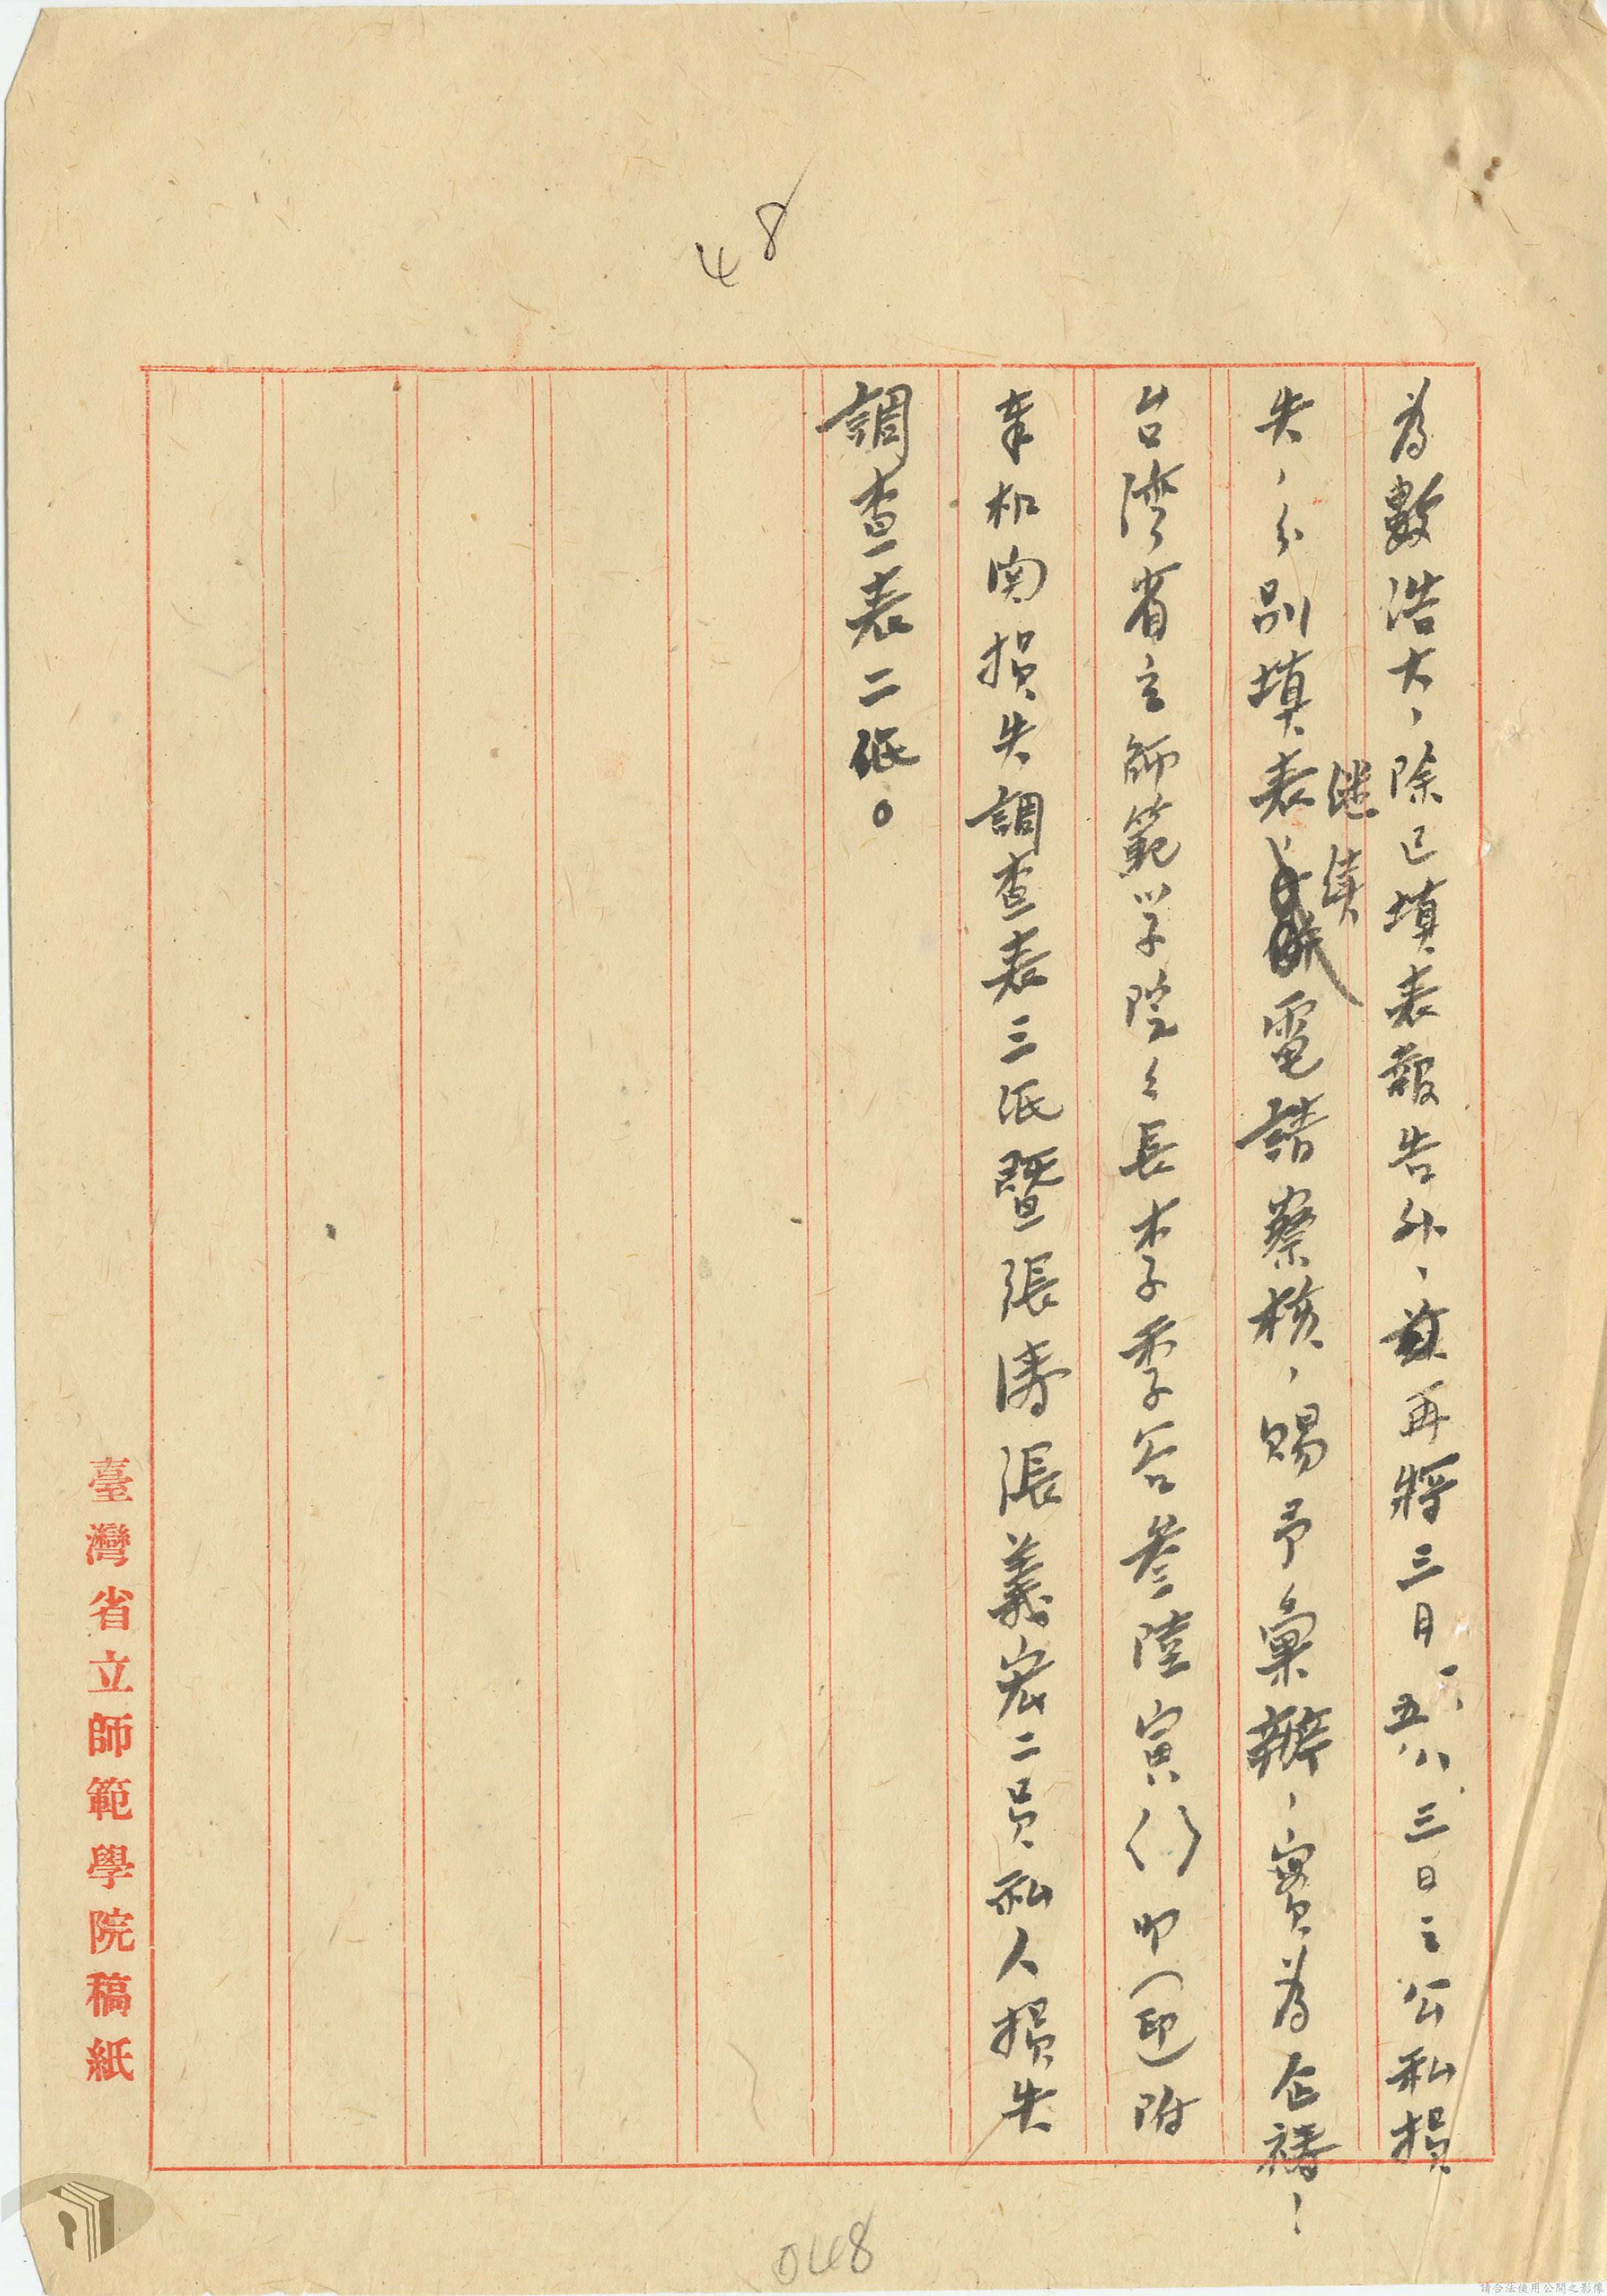 48
為數浩大，除已填表報告外，茲再將三月一、五、八、三日之公私損
失，分別填表繼續電請察核，賜予彙辦，實為企禱！
台湾省立師範学院々長李季谷叁陸寅（）叩（印）附
本机関損失調查表三纸暨張濤張義宏二員私人損失
調查表二纸。
臺灣省立師範學院稿紙
048
請合法使用公開之影像